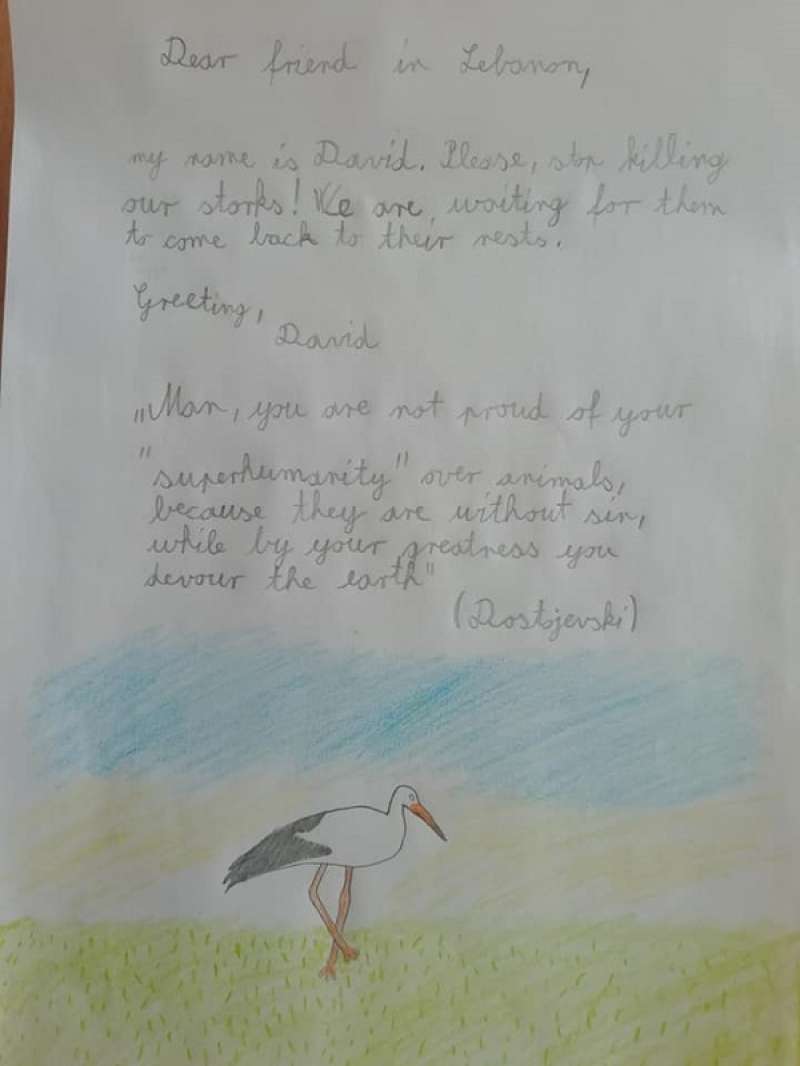 Dear friend in Lebanon,
my name is David. Please, stop killing
our storks! We are waiting for them
to come back to their nests.
Greeting,
David
„Man, you are not proud of your
"superhumanity" over animals,
because they are without sin,
while by your greatness you
devour the earth"
(Dostojevski)